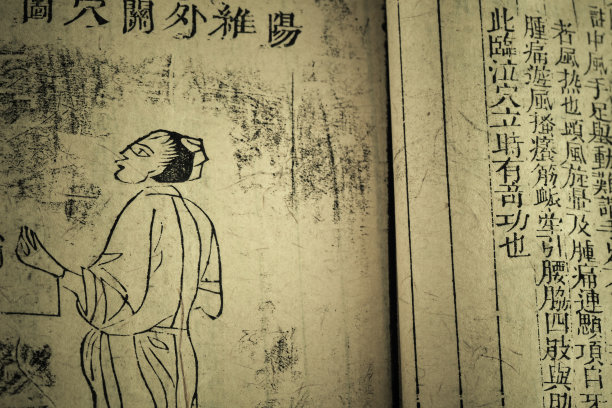 陽維外關穴圖
註中風手足舉動難
者風熱也頭風旋暈及腫痛連顋項目牙
腫痛遊風搔癢筋脈牽引腰脇四肢與肋
此臨泣穴立時有奇功也